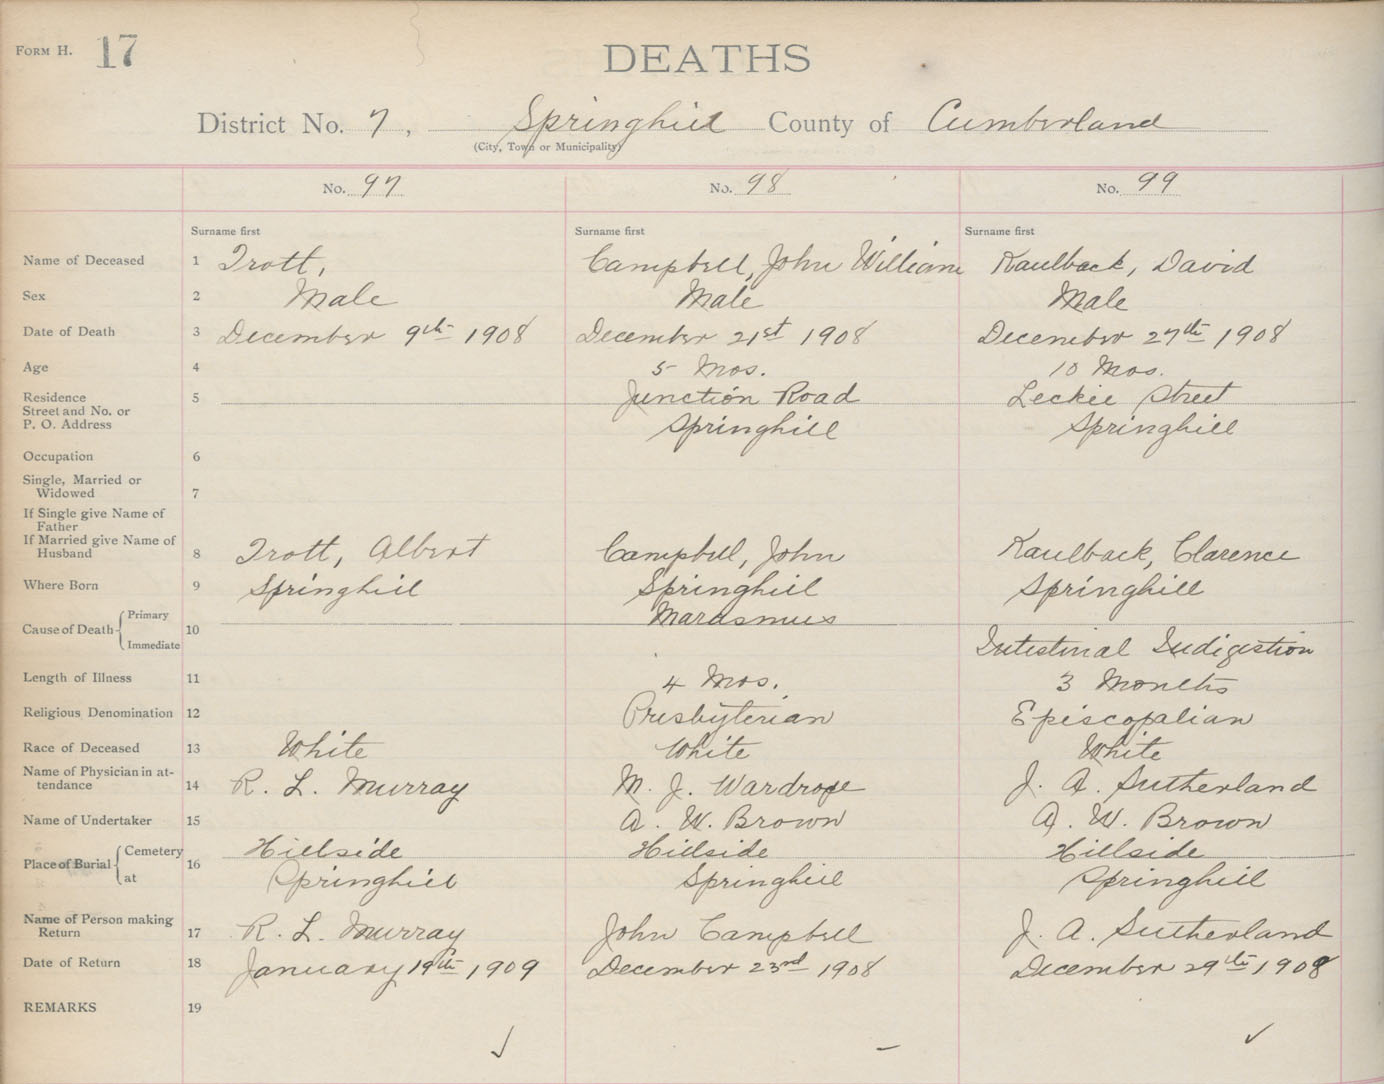 FORM H. 17
DEATHS
District No. 7, Springhill County of Cumberland
(City, Town or Municipality)
No. 97 No. 98 No. 99
Surname first Surname first Surname first
Name of Deceased 1 Trott, Campbell, John William Kaulback, David
Sex 2 Male Male Male
Date of Death 3 December 9th 1908 December 21st 1908 December 27th 1908
Age 4 5 Mos. 10 Mos.
Residence 5 Junction Road Leckie Street
Street and No. or
P. O. Address Springhill Springhill
Occupation 6
Single, Married or
Widowed 7
If Single give Name of
Father
If Married give Name of
Husband 8 Trott, Albert Campbell, John Kaulback, Clarence
Where Born 9 Springhill Springhill Springhill
Primary Marasmus
Cause of Death 10
Immediate Intestinal Indigestion
Length of Illness 11 4 Mos. 3 Months
Religious Denomination 12 Presbyterian Episcopalian
Race of Deceased 13 White White White
Name of Physician in at-
tendance 14 R. L. Murray M. J. Wardrope J. A. Sutherland
Name of Undertaker 15 A. W. Brown A. W. Brown
Cemetery Hillside Hillside Hillside
Place of Burial 16
at Springhill Springhill Springhill
Name of Person making
Return 17 R. L. Murray John Campbell J. A. Sutherland
Date of Return 18 January 19th 1909 December 23rd 1908 December 29th 1908
REMARKS 19